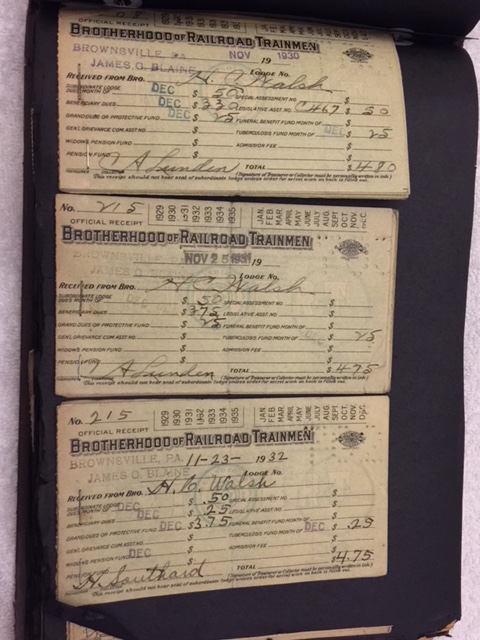 OFFICIAL RECEIPT
BROTHERHOOD OF RAILROAD TRAINMEN
BROWNSVILLE, PA. NOV 1930
19
JAMES G. BLAINE LODGE No.
RECEIVED FROM BRO. H. C. Walsh
SUBORDINATE LODGE DUES MONTH OF DEC $ 50 SPECIAL ASSESSMENT NO. $
BENEFICIARY DUES DEC $ 330 LEGISLATIVE ASST. NO. C467 $ 50
GRAND DUES OR PROTECTIVE FUND DEC $ 25 FUNERAL BENEFIT FUND MONTH OF $
GEN'L GRIEVANCE COM. ASST NO. $ TUBERCULOSIS FUND MONTH OF DEC $ 25
WIDOWS PENSION FUND $ ADMISSION FEE $
PENSION FUND $ TOTAL $ 4.80
A Lunden (Signature of Treasurer or Collector must be personally written in ink.)
This receipt should not bear seal of subordinate lodge unless order for secret work on back is filled out.
No. 215 1929 1930 1931 1932 1933 1934 1935 JAN. FEB. MAR. APRIL MAY JUNE JULY AUG. SEPT. OCT. NOV. DEC.
OFFICIAL RECEIPT
BROTHERHOOD OF RAILROAD TRAINMEN
NOV 25 1931 19
JAMES G. LODGE No.
RECEIVED FROM BRO. H C. Walsh
SUBORDINATE LODGE DUES MONTH OF DEC $ 50 SPECIAL ASSESSMENT NO. $
BENEFICIARY DUES $ 375 LEGISLATIVE ASST. NO. $
GRAND DUES OR PROTECTIVE FUND $ 25 FUNERAL BENEFIT FUND MONTH OF $
GEN'L GRIEVANCE COM. ASST NO. $ TUBERCULOSIS FUND MONTH OF DEC $ 25
WIDOWS PENSION FUND $ ADMISSION FEE $
PENSION FUND $ TOTAL $ 4.75
A Lunden (Signature of Treasurer or Collector must be personally written in ink.)
This receipt should not bear seal of subordinate lodge unless order for secret work on back is filled out.
No. 215 1929 1930 1931 1932 1933 1934 1935 JAN. FEB. MAR. APRIL MAY JUNE JULY AUG. SEPT. OCT. NOV. DEC.
OFFICIAL RECEIPT
BROTHERHOOD OF RAILROAD TRAINMEN
BROWNSVILLE, PA. 11-23- 1932
JAMES G. BLAINE LODGE No.
RECEIVED FROM BRO. H. C. Walsh
SUBORDINATE LODGE DUES MONTH OF DEC $ .50 SPECIAL ASSESSMENT NO. $
BENEFICIARY DUES DEC $ .25 LEGISLATIVE ASST. NO. $
GRAND DUES OR PROTECTIVE FUND DEC $ 3.75 FUNERAL BENEFIT FUND MONTH OF DEC $ .25
GEN'L GRIEVANCE COM. ASST NO. $ TUBERCULOSIS FUND MONTH OF $
WIDOWS PENSION FUND DEC $ ADMISSION FEE $
PENSION FUND $ TOTAL $ 4.75
H. Southard (Signature of Treasurer or Collector must be personally written in ink.)
This receipt should not bear seal of subordinate lodge unless order for secret work on back is filled out.